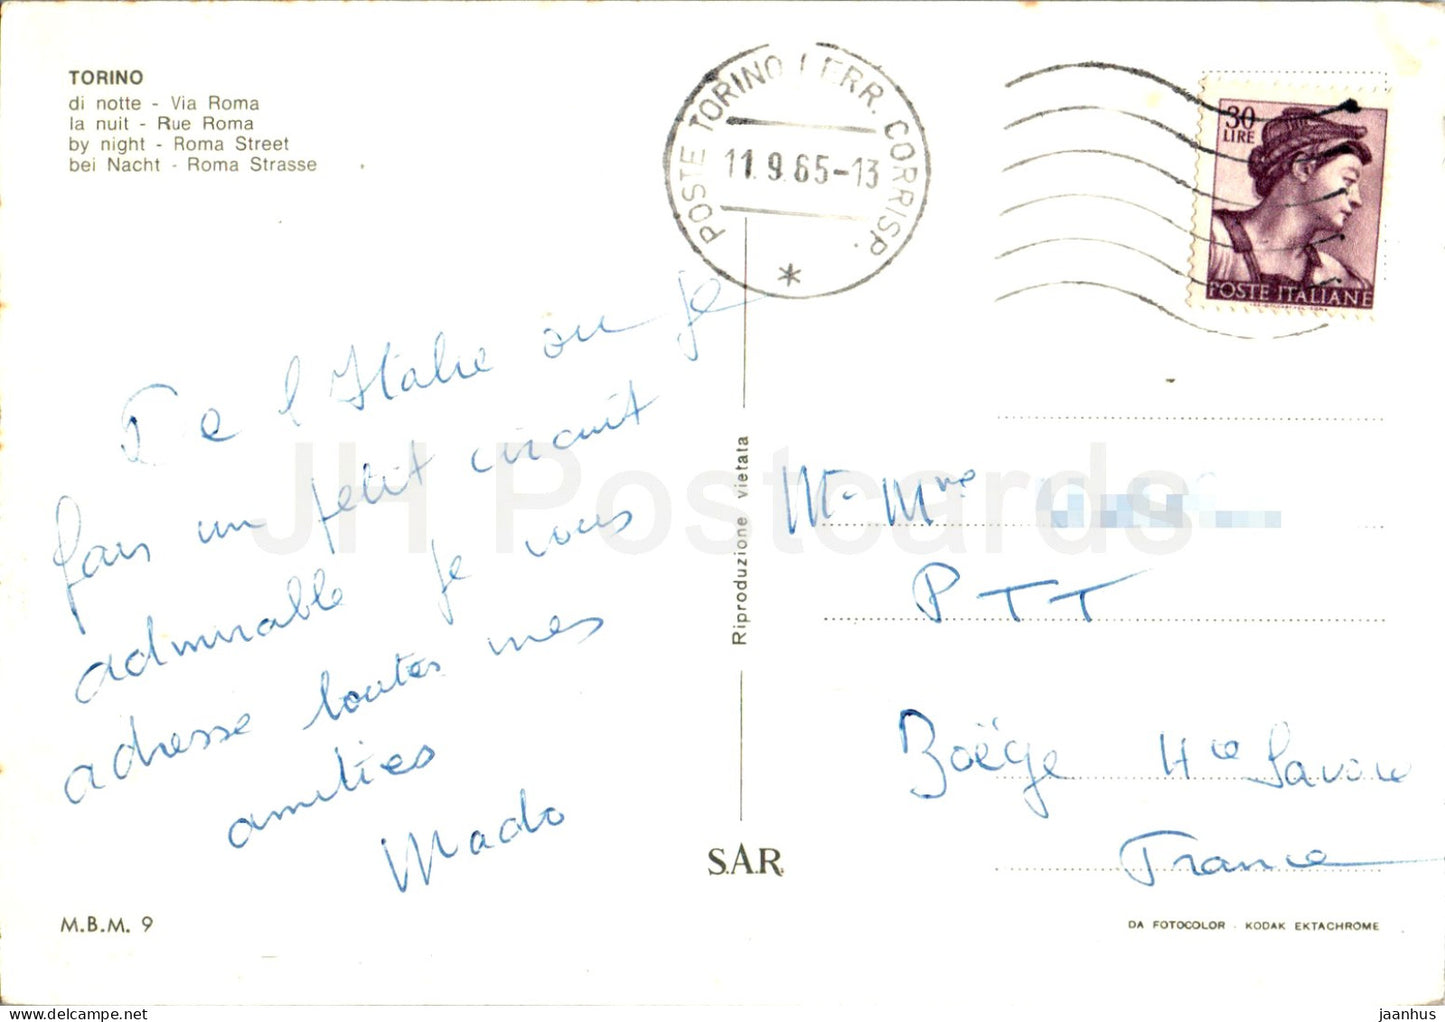 TORINO
di notte - Via Roma
la nuit - Rue Roma
by night - Roma Street
bei Nacht - Roma Strasse
POSTE TORINO FERR. CORRISP.
11.9.65-13
*
30
LIRE
POSTE ITALIANE
De l'Italie ou je
fais un petit circuit
admirable je vous
adresse toutes mes
amitiés
Mado
Riproduzione vietata
S.A.R.
M. Mme
PTT
Boëge Hte Savoie
France
M.B.M. 9
DA FOTOCOLOR - KODAK EKTACHROME
JH Postcards
jaanhus